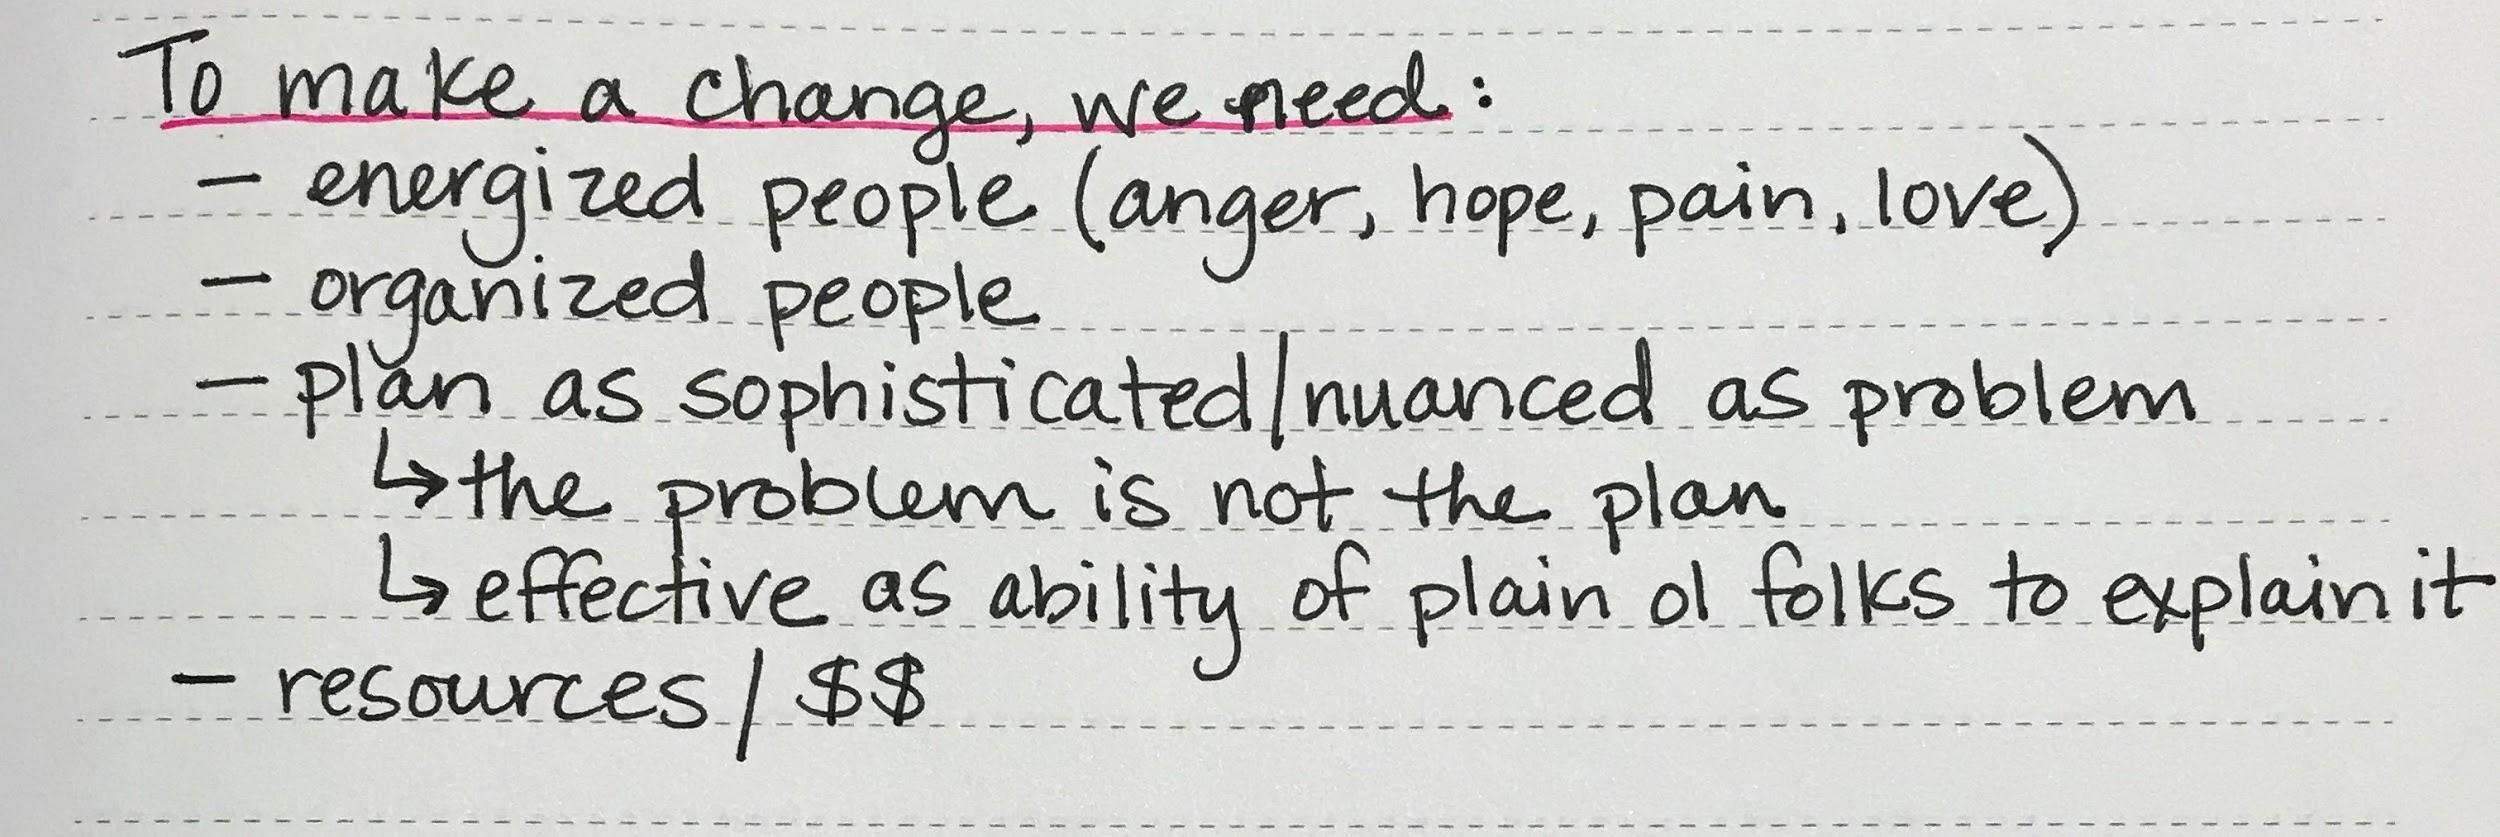 To make a change, we need:
– energized people (anger, hope, pain, love)
– organized people
– plan as sophisticated/nuanced as problem
↳ the problem is not the plan
↳ effective as ability of plain ol folks to explain it
– resources / $$